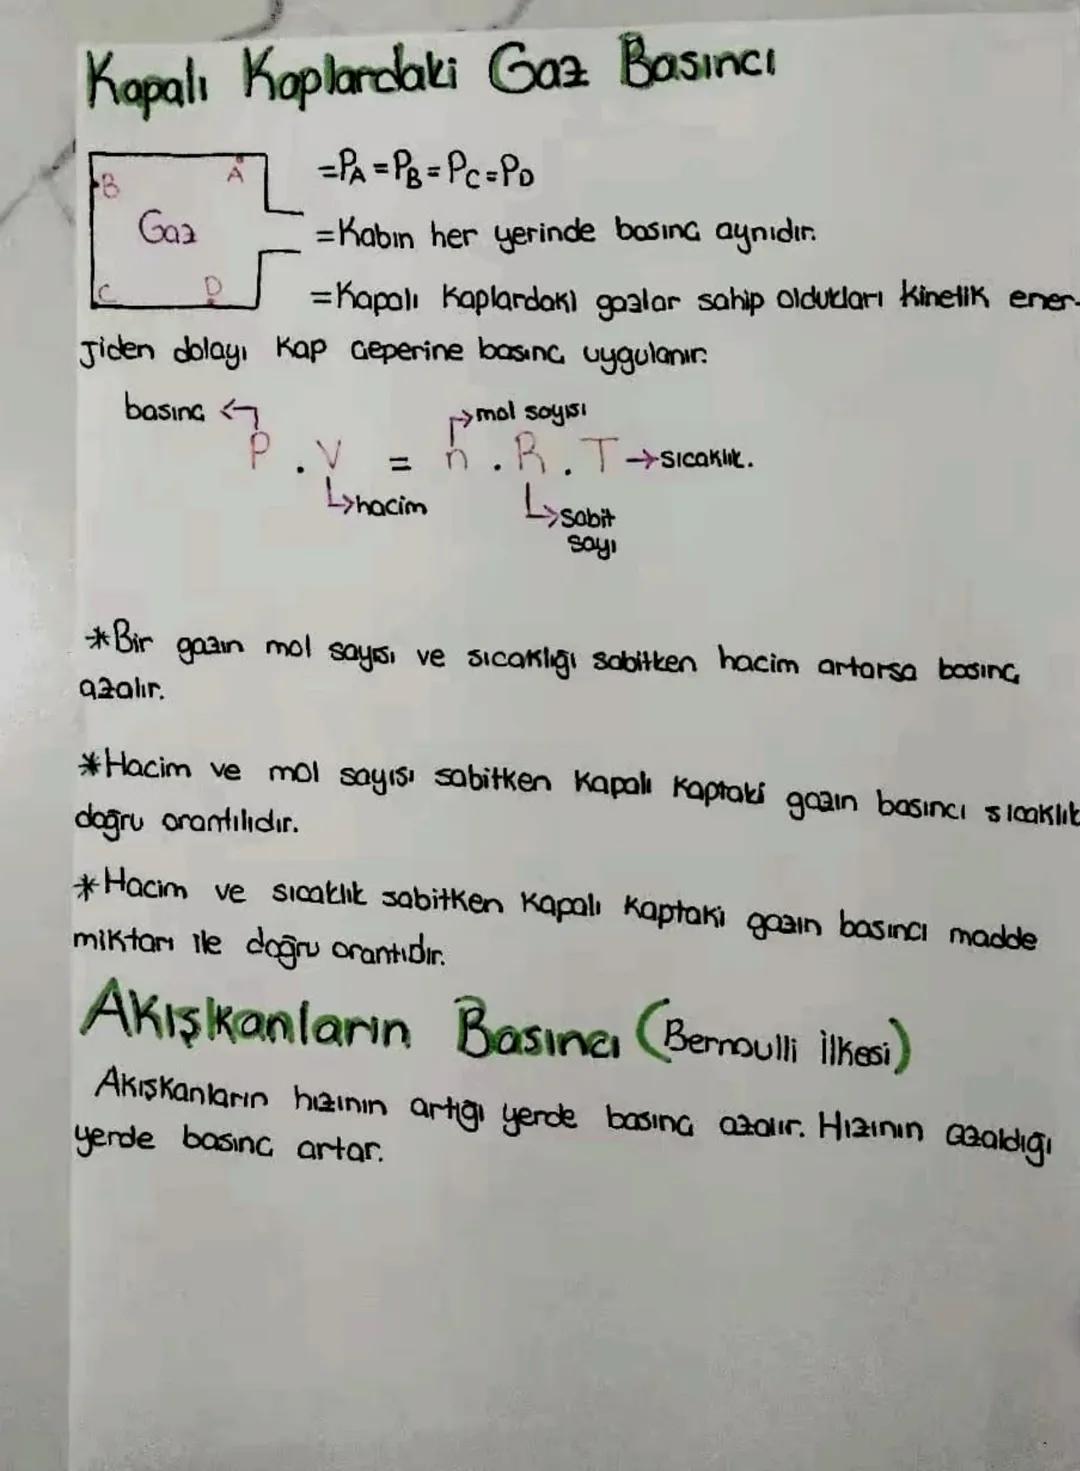 Kapalı Kaplardaki Gaz Basıncı
B A
Gaz
C D
=PA=PB=PC=PD
=Kabın her yerinde basınç aynıdır.
=Kapalı Kaplardaki gazlar sahip oldukları kinetik ener-
jiden dolayı kap çeperine basınç uygulanır.
basınç mol sayısı
P . V = n . R . T → sıcaklık.
hacim sabit
sayı
*Bir gazın mol sayısı ve sıcaklığı sabitken hacim artarsa basınç
azalır.
*Hacim ve mol sayısı sabitken kapalı kaptaki gazın basıncı sıcaklık
doğru orantılıdır.
*Hacim ve sıcaklık sabitken kapalı kaptaki gazın basıncı madde
miktarı ile doğru orantıdır.
Akışkanların Basıncı (Bernoulli İlkesi)
Akışkanların hızının artığı yerde basınç azalır. Hızının azaldığı
yerde basınç artar.